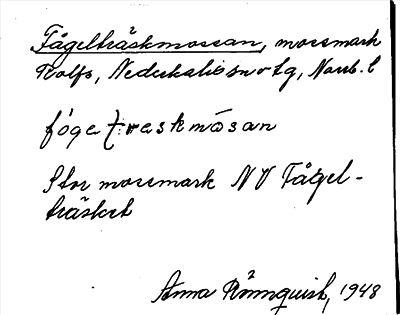 Fågelträskmossan, mossmark
Rolfs, Nederkalix snv lg, Norrb. l
fóge træskmòsan
Stor mossmark NV Fågel-
träsket
Anna Rönnquist, 1948